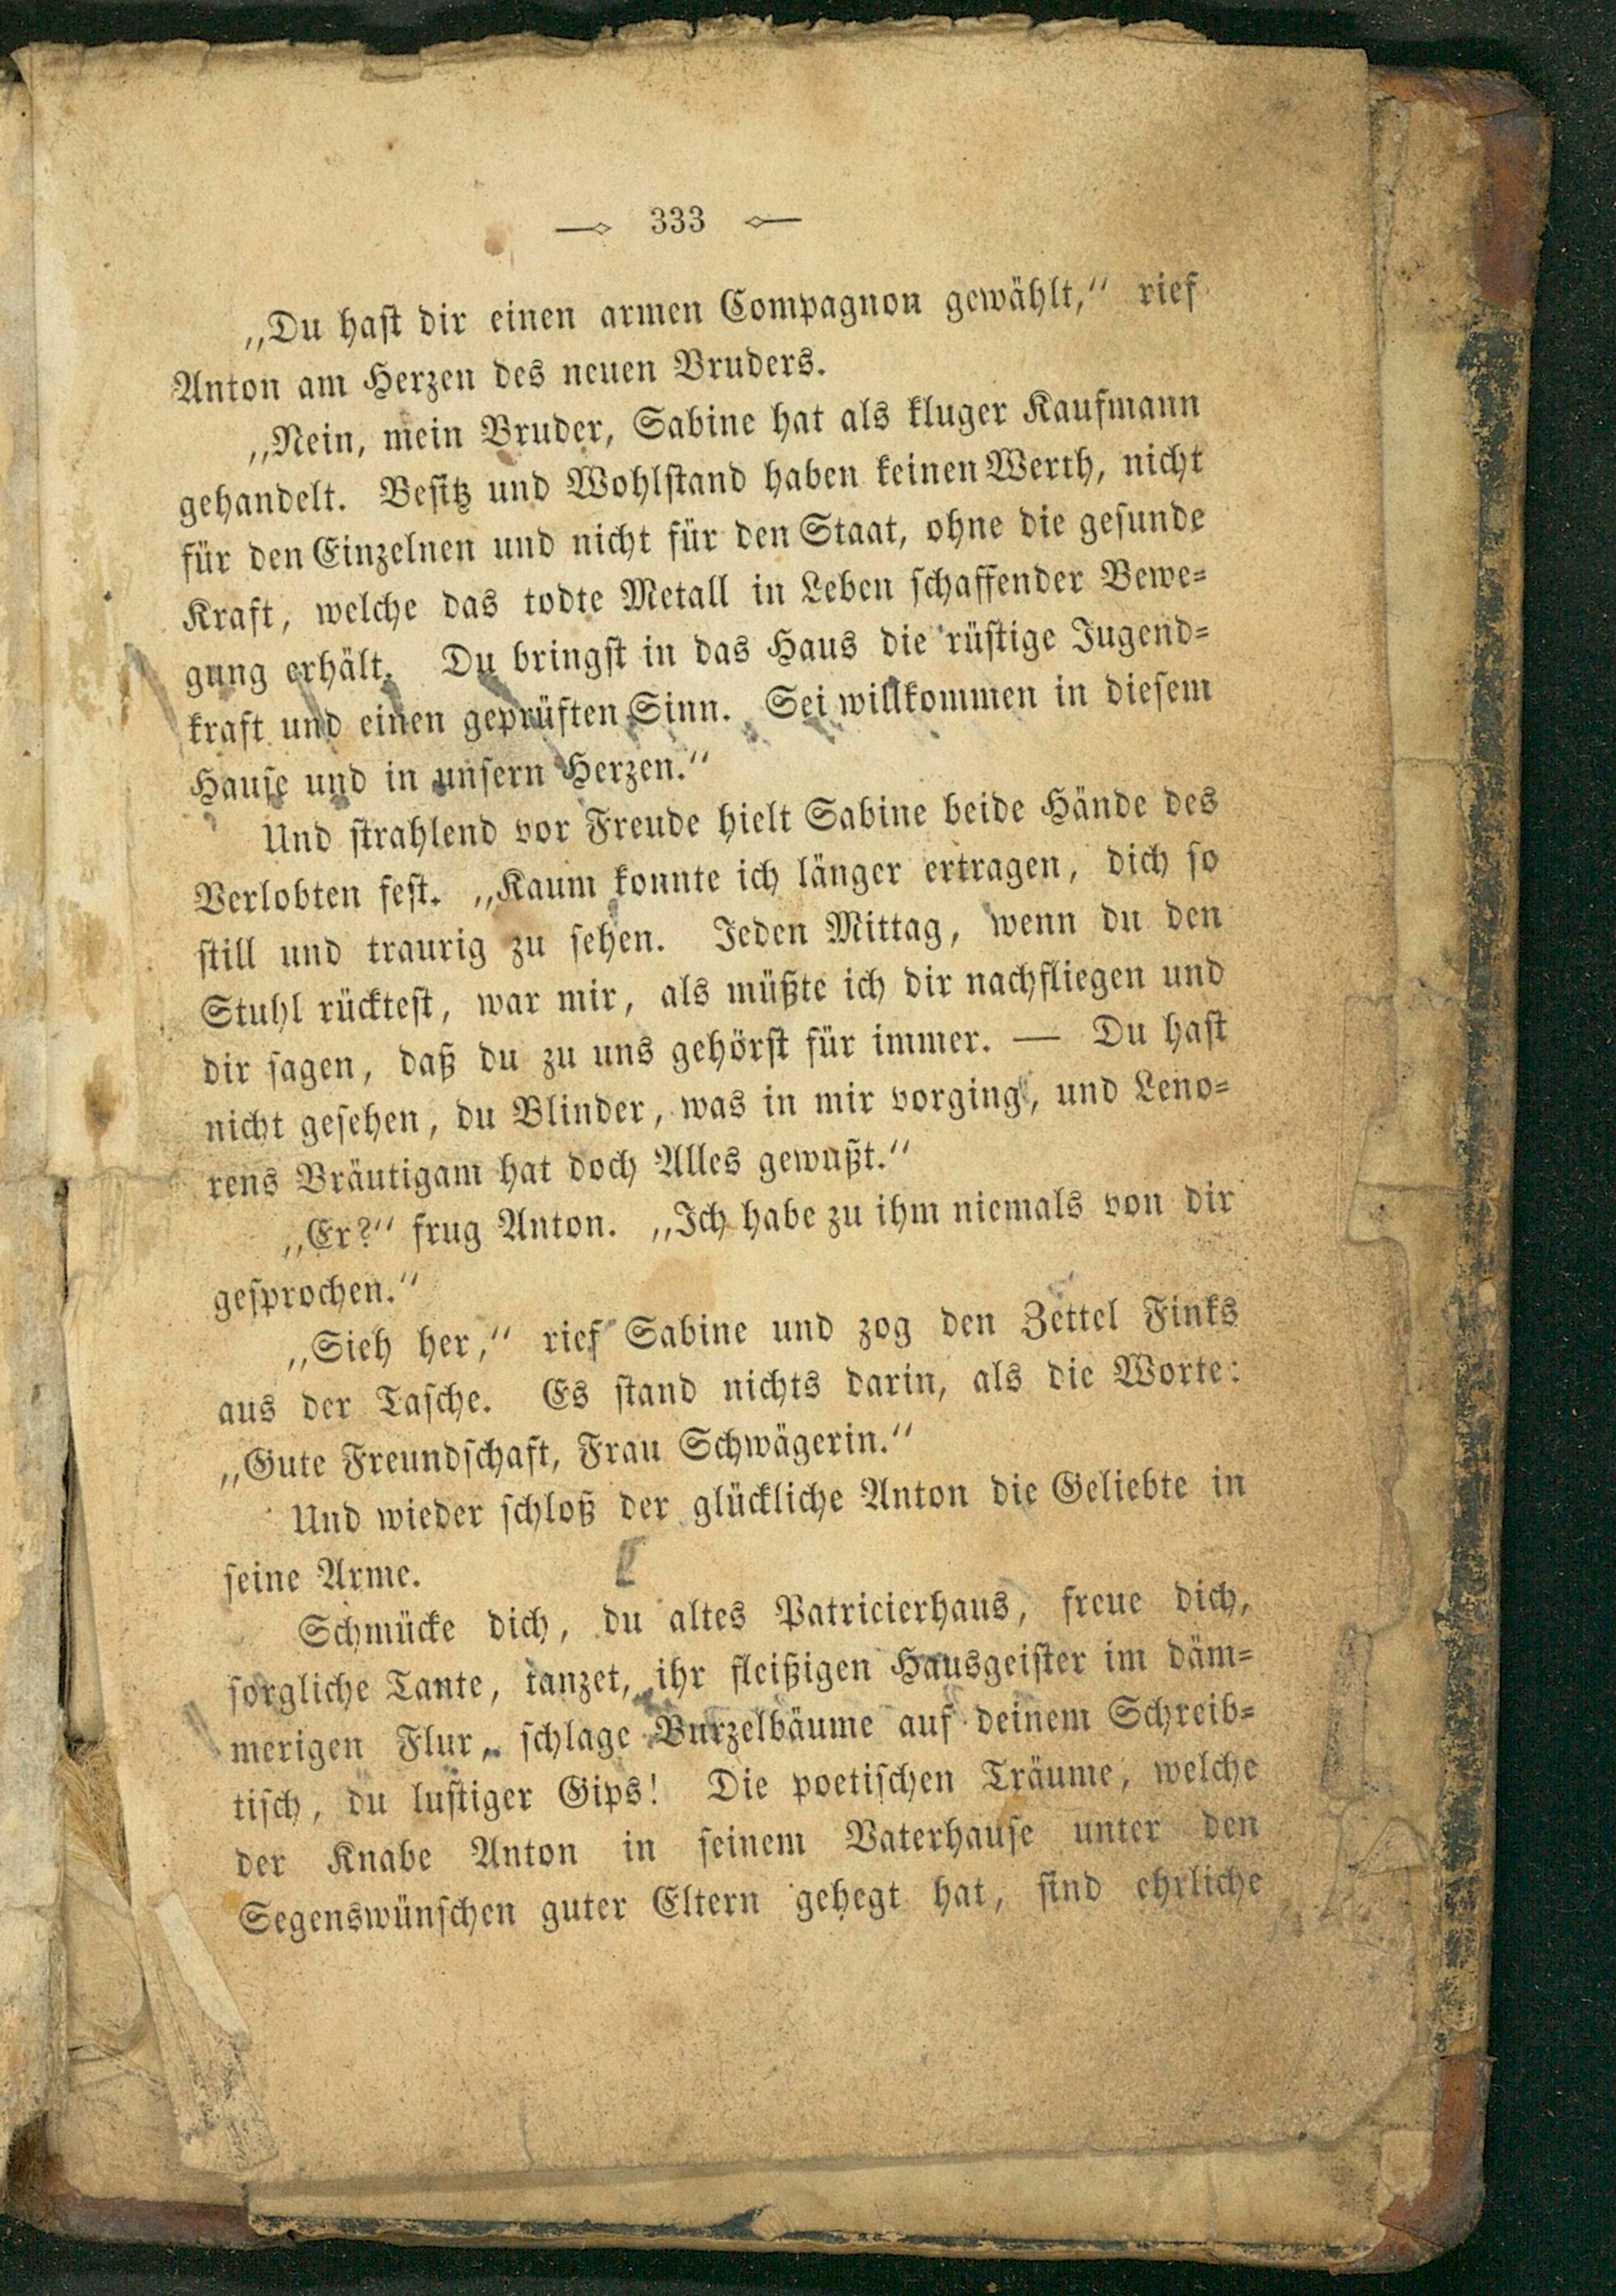 333
„Du hast dir einen armen Compagnon gewählt,“ rief
Anton am Herzen des neuen Bruders.
„Nein, mein Bruder, Sabine hat als kluger Kaufmann
gehandelt. Besitz und Wohlstand haben keinen Werth, nicht
für den Einzelnen und nicht für den Staat, ohne die gesunde
Kraft, welche das todte Metall in Leben schaffender Bewe-
gung erhält. Du bringst in das Haus die rüstige Jugend-
kraft und einen geprüften Sinn. Sei willkommen in diesem
Hause und in unsern Herzen.“
Und strahlend vor Freude hielt Sabine beide Hände des
Verlobten fest. „Kaum konnte ich länger ertragen, dich so
still und traurig zu sehen. Jeden Mittag, wenn du den
Stuhl rücktest, war mir, als müßte ich dir nachfliegen und
dir sagen, daß du zu uns gehörst für immer. — Du hast
nicht gesehen, du Blinder, was in mir vorging, und Leno-
rens Bräutigam hat doch Alles gewußt.“
„Er?“ frug Anton. „Ich habe zu ihm niemals von dir
gesprochen.“
„Sieh her,“ rief Sabine und zog den Zettel Finks
aus der Tasche. Es stand nichts darin, als die Worte:
„Gute Freundschaft, Frau Schwägerin.“
Und wieder schloß der glückliche Anton die Geliebte in
seine Arme.
Schmücke dich, du altes Patricierhaus, freue dich,
sorgliche Tante, tanzet, ihr fleißigen Hausgeister im däm-
merigen Flur, schlage Burzelbäume auf deinem Schreib-
tisch, du lustiger Gips! Die poetischen Träume, welche
der Knabe Anton in seinem Vaterhause unter den
Segenswünschen guter Eltern gehegt hat, sind ehrliche